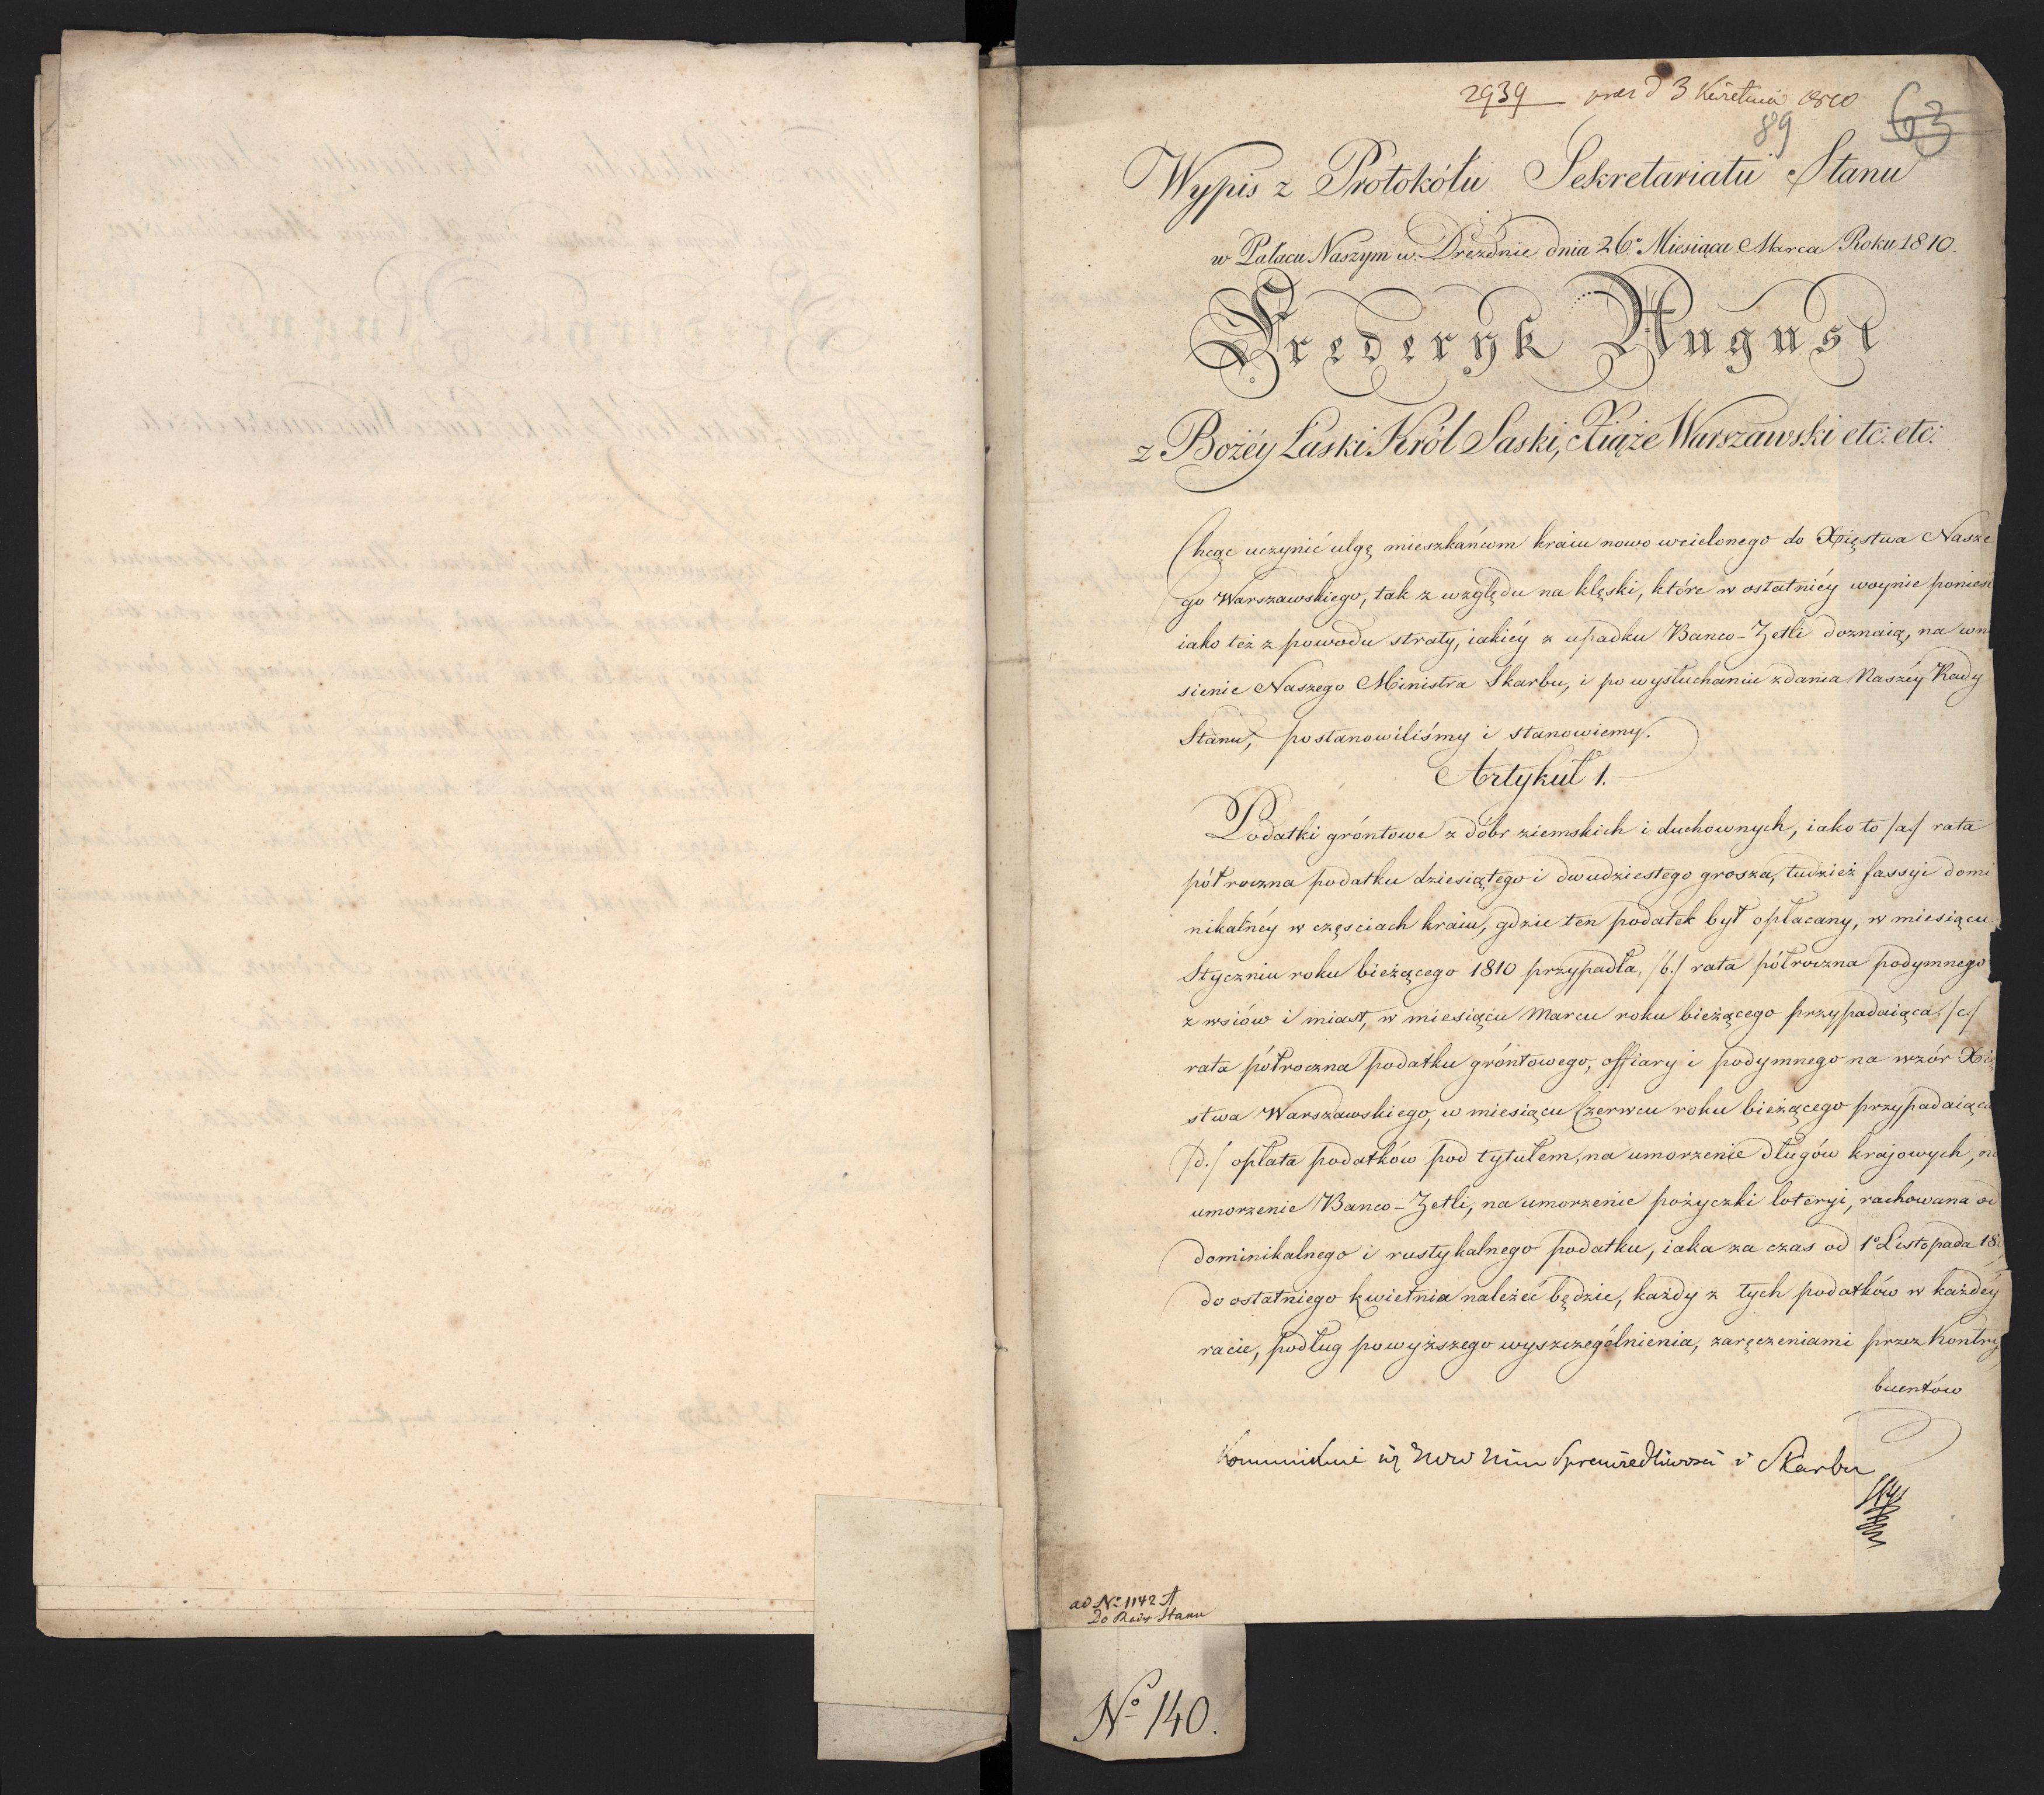 2939 prez d 3 Kwietnia 1810
89
63
Wypis z Protokółu Sekretariatu Stanu
w Pałacu Naszym w Dreźdnie dnia 26º Miesiąca Marca Roku 1810.
Frederyk August
z Bożéy Łaski Król Saski, Xiąże Warszawski etc: etc:
Chcąc uczynić ulgę mieszkańcom kraiu nowo wcielonego do Xięstwa Nasze
go Warszawskiego, tak z względu na klęski, które w ostatniéy woynie ponieśl
iako też z powodu straty, iakiéy z upadku Banco-Zetli doznaią, na wn
sienie Naszego Ministra Skarbu, i po wysłuchaniu zdania Naszéy Rady
Stanu, postanowiliśmy i stanowiemy.
Artykuł 1.
Podatki gróntowe z dóbr ziemskich i duchownych, iako to /a./ rata
półroczna podatku dziesiątego i dwudziestego grosza, tudzież fassyi domi
nikalnéy w częściach kraiu, gdzie ten podatek był opłacany, w miesiącu
Styczniu roku bieżącego 1810 przypadła, /b./ rata półroczna podymnego
z wsiów i miast, w miesiącu Marcu roku bieżącego przypadaiąca, /c./
rata półroczna podatku gróntowego, offiary i podymnego na wzór Xię
stwa Warszawskiego, w miesiącu Czerwcu roku bieżącego przypadaiąca
/d./ opłata podatków pod tytułem, na umorzenie długów krajowych, na
umorzenie Banco-Zetli, na umorzenie pożyczki loteryi, rachowana od
dominikalnego i rustykalnego podatku, iaka za czas od 1º Listopada 18
do ostatniego kwietnia należeć będzie, każdy z tych podatków w każdéy
racie, podług powyższego wyszczególnienia, zaręczeniami przez Kontry
buentów
Kommunikuie się Sprawiedliwości i Skarbu
ad Nº 1142 A
Do Rady Stanu
Nº 140.